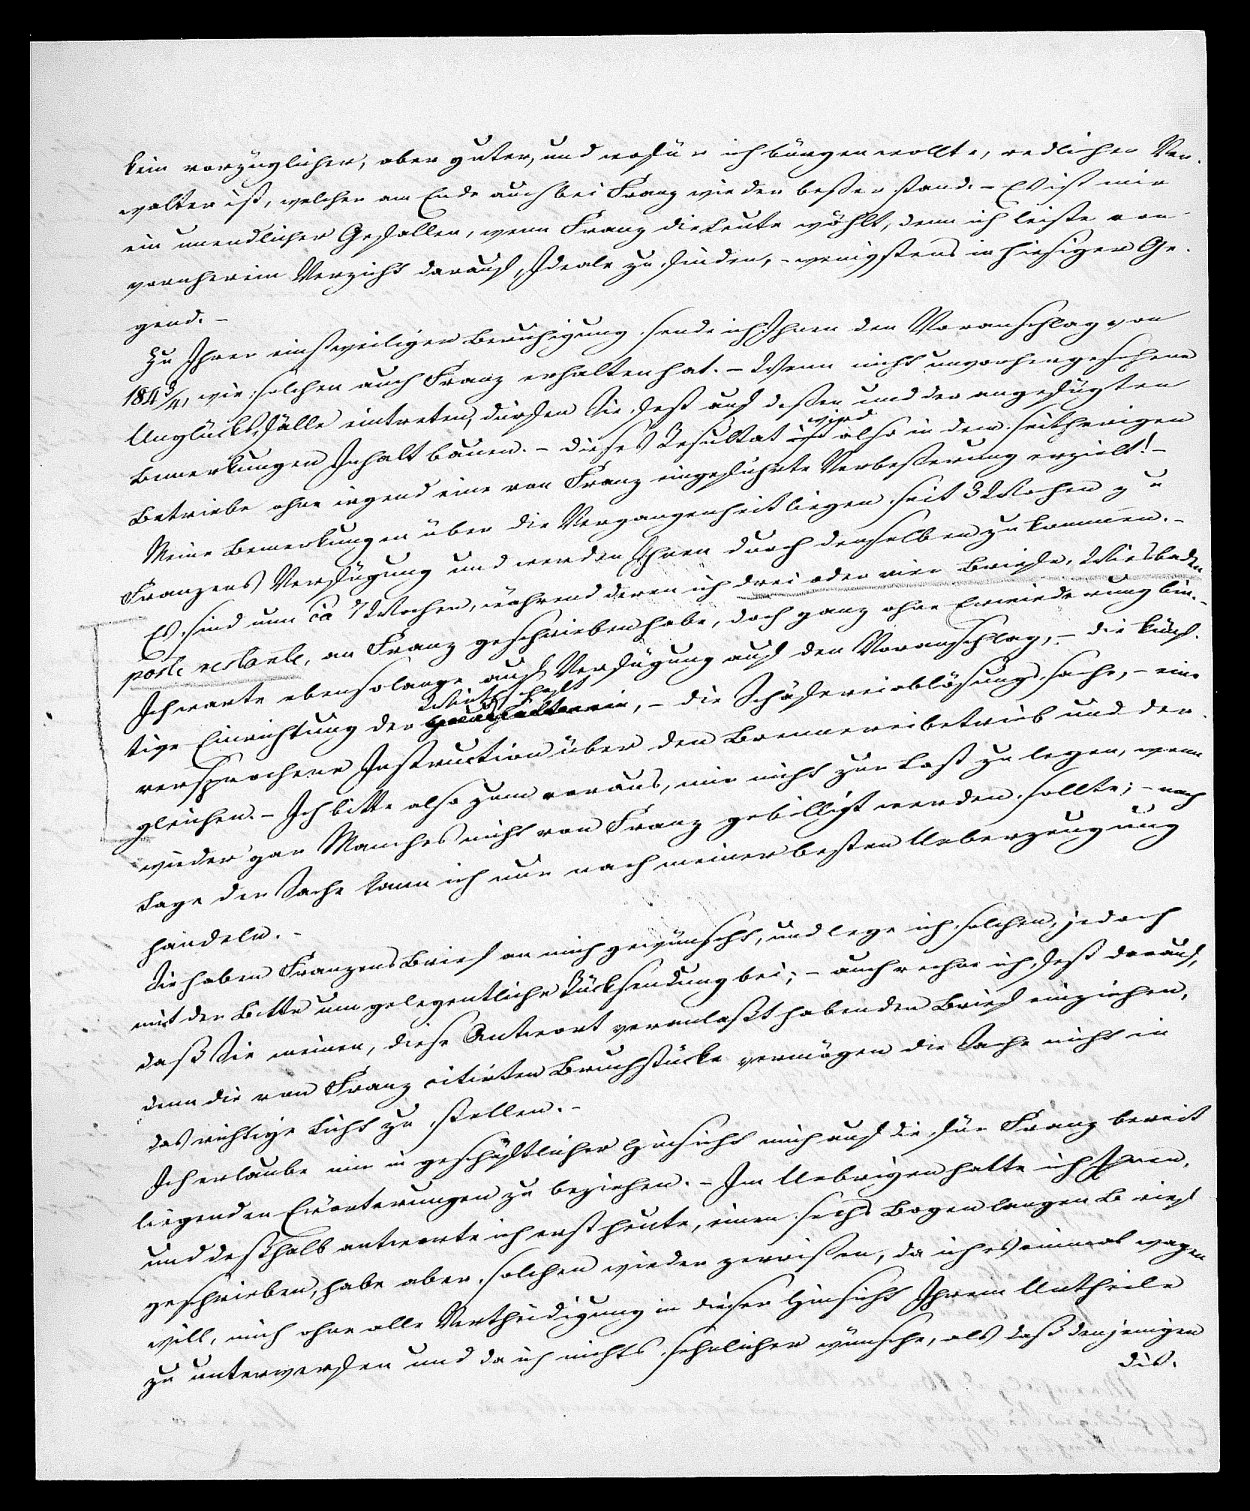 kein vorzüglicher, aber guter, und wofür ich bürgen wollte, redlicher Ver-
walter ist, welcher am Ende auch bei Franz wieder besser stand. – Es ist mir
ein unendlicher Gefallen, wenn Franz die Leute wählt, denn ich leiste von
vornherein Verzicht darauf, Ideale zu finden, – wenigstens in hiesiger Ge-
gend. –
Zu Ihrer einstweiligen Beruhigung sende ich Ihnen den Voranschlag von
184¾, wie solchen auch Franz erhalten hat. – Wenn nicht unvorhergesehene
Unglücksfälle eintreten, dürfen Sie fest auf dessen und der angefügten
Bemerkungen Inhalt bauen. – Dieses Resultat wird also in dem seitherigen
Betriebe ohne irgend eine von Franz eingeführte Verbesserung erzielt! –
Meine Bemerkungen über die Vergangenheit liegen seit 3 Wochen zu
Franzens Verfügung und werden Ihnen durch denselben zukommen. –
Es sind nun ca 7 Wochen, während deren ich drei oder vier Briefe, Wiesbaden
poste restante, an Franz geschrieben habe, doch ganz ohne Erwiederung bin. –
Ich warte ebensolange auf Verfügung auf den Voranschlag, – die künf-
tige Einrichtung der Wirthschaft, – die Schäfereiablösungssache, – eine
versprochene Instruction über den Brennereibetrieb und der-
gleichen. – Ich bitte also zum voraus, mir nicht zur Last zu legen, wenn
wieder gar Manches nicht von Franz gebilligt werden sollte; – nach
Lage der Sache kann ich nur nach meiner besten Ueberzeugung
handeln. –
Sie haben Franzens Brief an mich gewünscht, und lege ich solchen, jedoch
mit der Bitte um gelegentliche Rücksendung bei; – auch rechne ich fest darauf,
daß Sie meinen, diese Antwort veranlaßt habenden Brief einziehen,
denn die von Franz citirten Bruchstücke vermögen die Sache nicht in
das richtige Licht zu stellen. –
Ich erlaube mir in geschäftlicher Hinsicht mich auf die für Franz bereit
liegenden Erörterungen zu beziehen. – Im Uebrigen hatte ich Ihnen,
und deßhalb antworte ich erst heute, einen sechs Bogen langen Brief
geschrieben, habe aber solchen wieder zerrissen, da ich es einmal wagen
will, mich ohne alle Vertheidigung in dieser Hinsicht Ihrem Urtheile
zu unterwerfen und da ich nichts sehnlicher wünsche, als daß denjenigen
die.